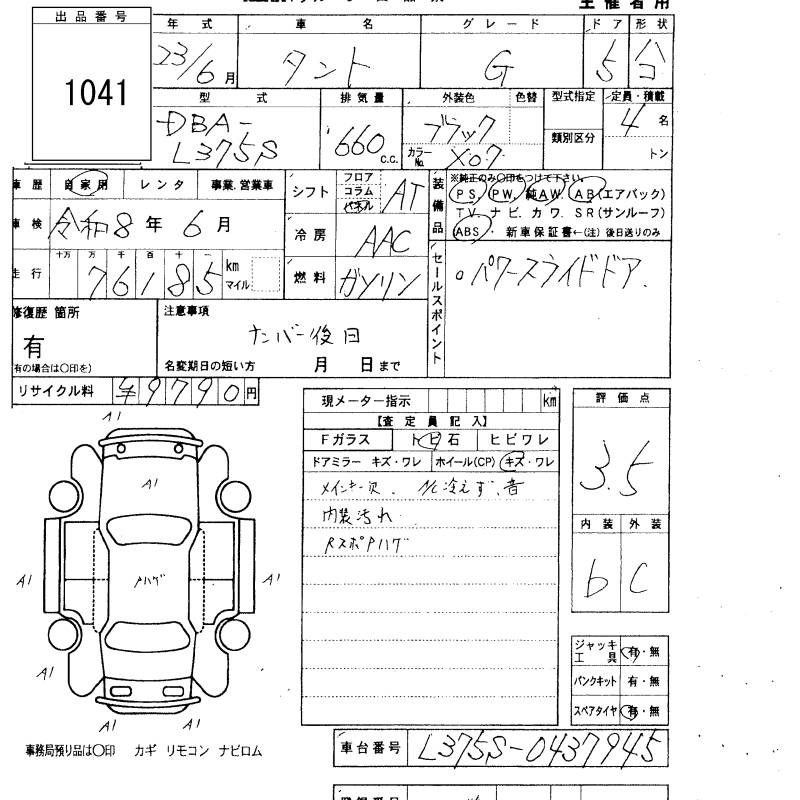 主催者用
出品番号
1041
年式 車名 グレード ドア 形状
23/6月 タント G 5 ハコ
型式 排気量 外装色 色替 型式指定 定員・積載
DBA-
L375S
660 c.c.
ブラック
カラーNo. X07
類別区分
4名
トン
車歴 自家用 レンタ 事業.営業車
車検 令和8年6月
走行 十万 万 千 百 十 一
76185 km
マイル
シフト フロア コラム パネル AT
冷房 AAC
燃料 ガソリン
装備品
※純正のみ〇印をつけて下さい。
PS. PW. 純AW. AB(エアバック)
TV. ナビ. カワ. SR(サンルーフ)
ABS. 新車保証書←(注) 後日送りのみ
セールスポイント
。パワースライドドア.
修復歴 箇所
有
(有の場合は〇印を)
注意事項
ナンバー後日
名変期日の短い方 月 日まで
リサイクル料 ¥9790円
現メーター指示 km
【査定員記入】
Fガラス トビ石 ヒビワレ
ドアミラー キズ・ワレ ホイール(CP) キズ・ワレ
メインキー欠. A/C冷えず、音
内装汚れ
RスポPハゲ
評価点
3.5
内装 外装
b C
A1
A1
A1 PハゲA1
A1
A1 A1
ジャッキ工具 有・無
パンクキット 有・無
スペアタイヤ 有・無
事務局預り品は〇印 カギ リモコン ナビロム
車台番号 L375S-0437945